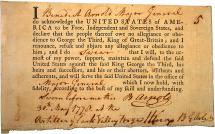 I Benedict Arnold Major General 5
do acknowledge the UNITED STATES of AME-
RICA to be Free, Independent and Sovereign States, and
declare that the people thereof owe no allegiance or obe-
dience to George the Third, King of Great-Britain; and I
renounce, refuse and abjure any allegiance or obedience to
him; and I do Swear that I will, to the ut-
most of my power, support, maintain and defend the said
United States against the said King George the Third, his
heirs and successors, and his or their abettors, assistants and
adherents, and will serve the said United States in the office of
Major General which I now hold, with
fidelity, according to the best of my skill and understanding.
Sworn before me B Arnold
30th May 1778 at the
Artillery Park Valley Forge HKnox B G Artillery